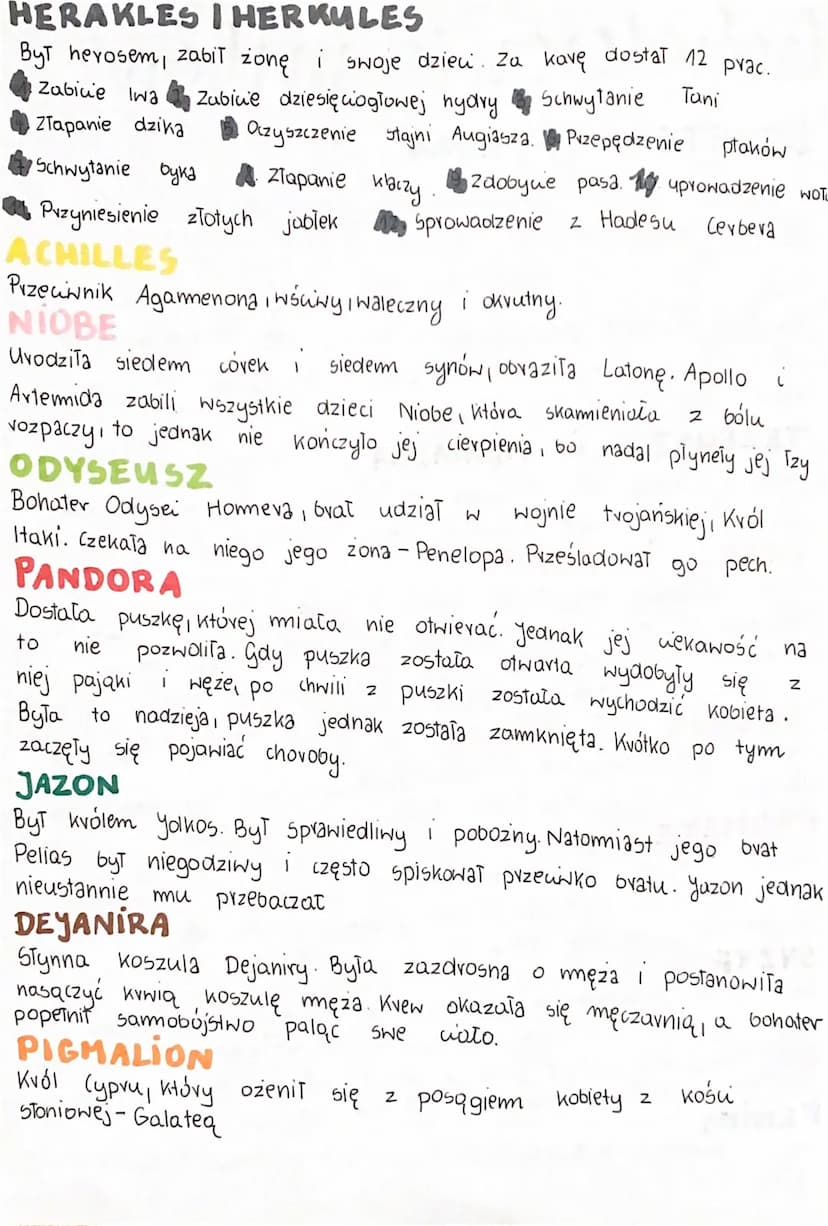 HERAKLES I HERKULES
Był herosem, zabił żonę i swoje dzieci. Za karę dostał 12 prac.
1 Zabicie lwa 2, Zabicie dziesięciogłowej hydry 3, Schwytanie Tani
4 Złapanie dzika 5 Oczyszczenie stajni Augiasza. 6, Przepędzenie ptaków
7, Schwytanie byka 8. Złapanie klaczy. 9 Zdobycie pasa. 10, uprowadzenie woł
11, Przyniesienie złotych jabłek 12, Sprowadzenie z Hadesu Cerbera
ACHILLES
Przeciwnik Agamenona, mściwy, waleczny i okrutny.
NIOBE
Urodziła siedem córek i siedem synów, obraziła Latonę. Apollo i
Artemida zabili wszystkie dzieci Niobe, która skamieniała z bólu
rozpaczy, to jednak nie kończyło jej cierpienia, bo nadal płynęły jej łzy
ODYSEUSZ
Bohater Odysei Homera, brał udział w wojnie trojańskiej, Król
Itaki. Czekała na niego jego żona - Penelopa. Prześladował go pech.
PANDORA
Dostała puszkę, której miała nie otwierać. Jednak jej ciekawość na
to nie pozwoliła. Gdy puszka została otwarta wydobyły się z
niej pająki i węże, po chwili z puszki została wychodzić kobieta.
Była to nadzieja, puszka jednak została zamknięta. Krótko po tym
zaczęły się pojawiać choroby.
JAZON
Był królem Jolkos. Był sprawiedliwy i pobożny. Natomiast jego brat
Pelias był niegodziwy i często spiskował przeciwko bratu. Jazon jednak
nieustannie mu przebaczał
DEJANIRA
Słynna koszula Dejaniry. Była zazdrosna o męża i postanowiła
nasączyć krwią koszulę męża. Krew okazała się męczarnią, a bohater
popełnił samobójstwo paląc swe ciało.
PIGMALION
Król Cypru, który ożenił się z posągiem kobiety z kości
słoniowej - Galateą